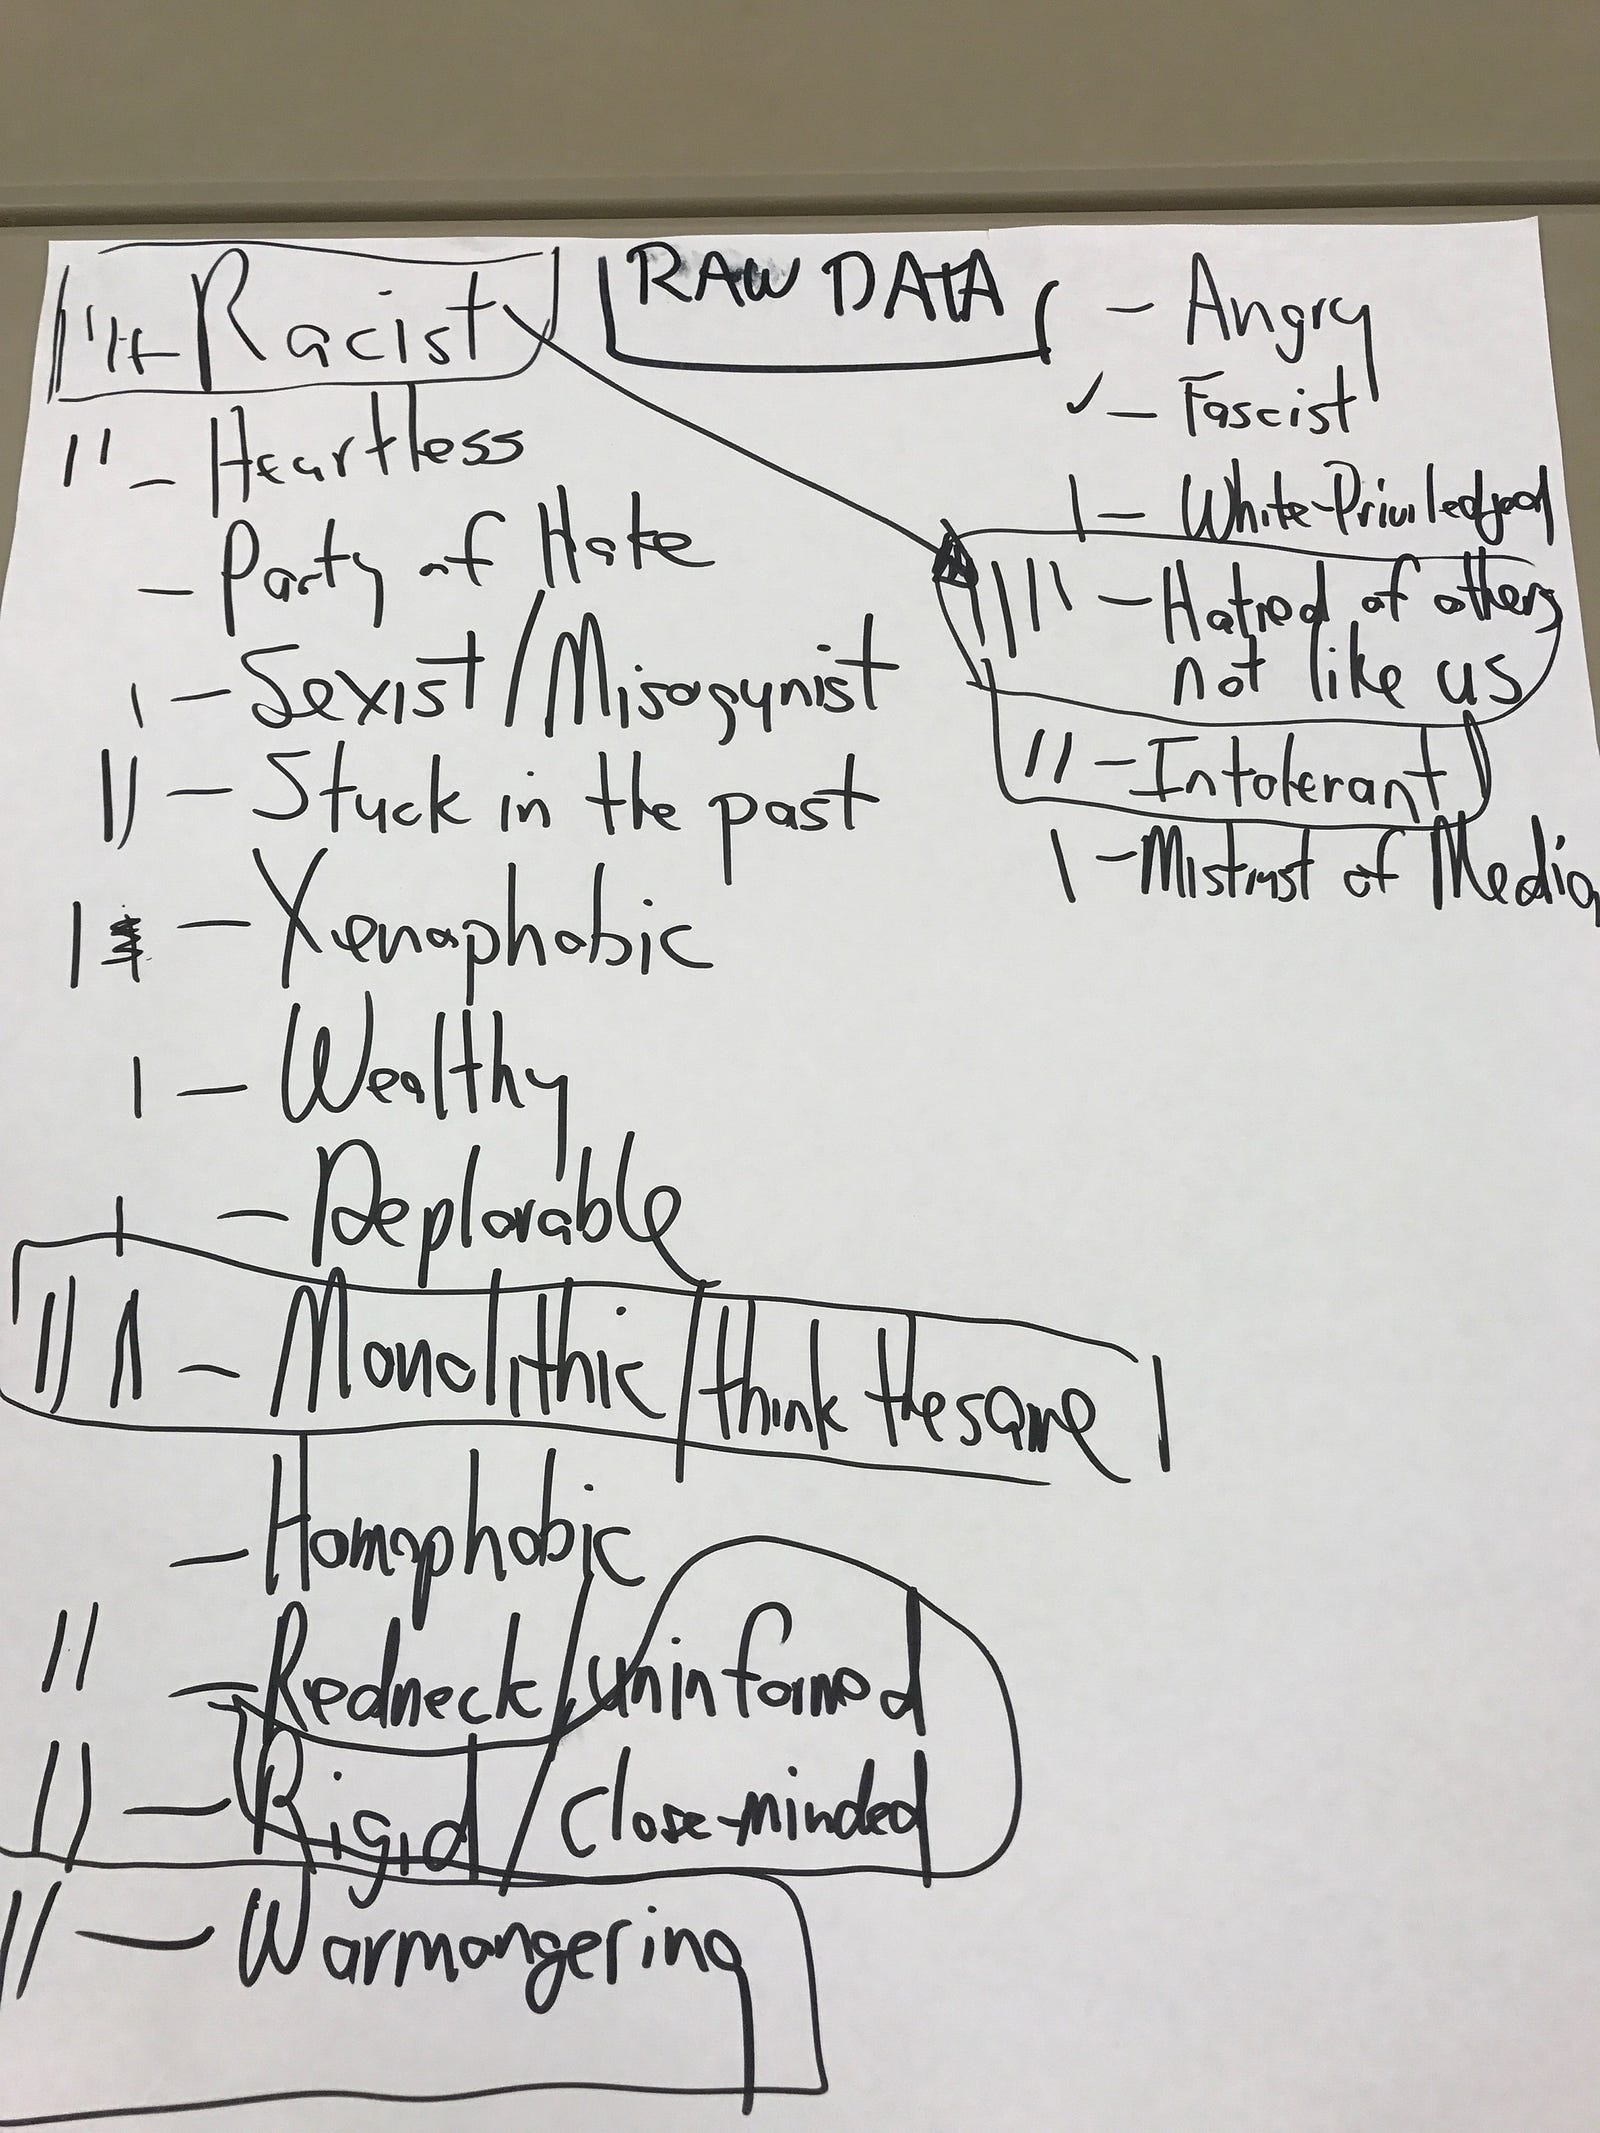 RAW DATA
Racist
|| – Heartless
– Party of Hate
| – Sexist/Misogynist
|| – Stuck in the past
| – Xenaphobic
| – Wealthy
| – Deplorable
|| – Monolithic/think the same |
– Homophobic
|| – Redneck/uninformed
|| – Rigid/close-minded
|| – Warmongering
– Angry
✓ – Fascist
| – White-Priviledged
|||| – Hatred of others
not like us
|| – Intolerant
| – Mistrust of Media